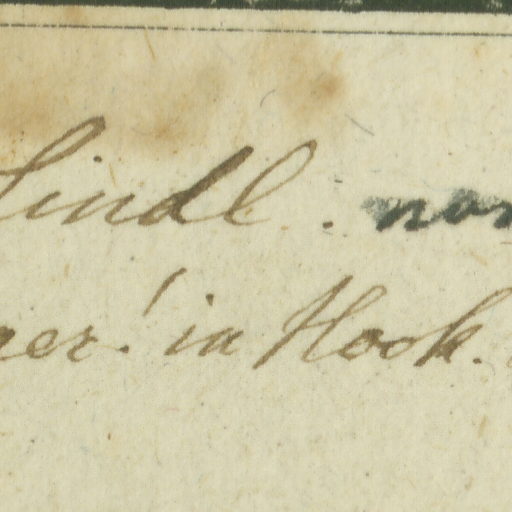 Lindl. non
ner! in Hook.